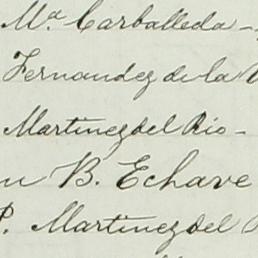 Mª Carballeda -
Fernandez de la
Martinez del Rio -
B. Echave
P. Martinez del